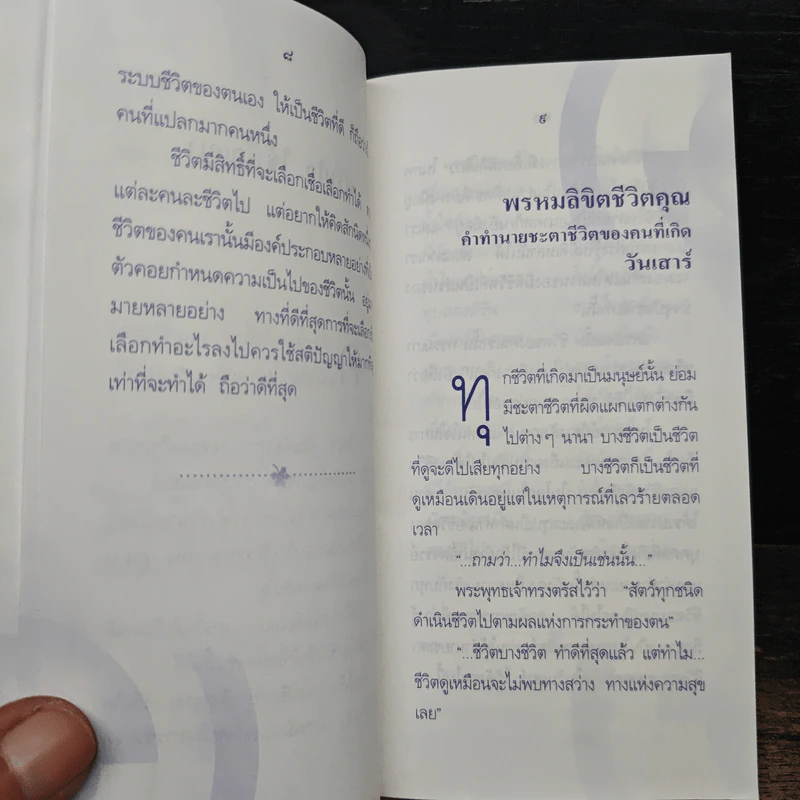 ๘
ระบบชีวิตของตนเอง ให้เป็นชีวิตที่ดี
คนที่แปลกมากคนหนึ่ง
ชีวิตมีสิทธิ์ที่จะเลือกเชื่อเลือกทำได้
แต่ละคนละชีวิตไป แต่อยากให้คิดสักนิดหนึ่ง
ชีวิตของคนเรานั้นมีองค์ประกอบหลายอย่างที่
ตัวคอยกำหนดความเป็นไปของชีวิตนั้น
มายหลายอย่าง ทางที่ดีที่สุดการที่จะเลือก
เลือกทำอะไรลงไปควรใช้สติปัญญาให้มาก
เท่าที่จะทำได้ ถือว่าดีที่สุด
๙
พรหมลิขิตชีวิตคุณ
คำทำนายชะตาชีวิตของคนที่เกิด
วันเสาร์
ทุกชีวิตที่เกิดมาเป็นมนุษย์นั้น ย่อม
มีชะตาชีวิตที่ผิดแผกแตกต่างกัน
ไปต่างๆ นานา บางชีวิตเป็นชีวิต
ที่ดูจะดีไปเสียทุกอย่าง บางชีวิตก็เป็นชีวิตที่
ดูเหมือนเดินอยู่แต่ในเหตุการณ์ที่เลวร้ายตลอด
เวลา
“...ถามว่า...ทำไมจึงเป็นเช่นนั้น...”
พระพุทธเจ้าทรงตรัสไว้ว่า “สัตว์ทุกชนิด
ดำเนินชีวิตไปตามผลแห่งการกระทำของตน”
“...ชีวิตบางชีวิต ทำดีที่สุดแล้ว แต่ทำไม...
ชีวิตดูเหมือนจะไม่พบทางสว่าง ทางแห่งความสุข
เลย”